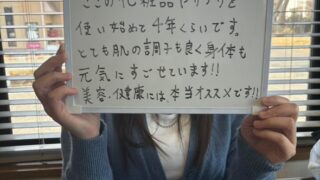 ここの化粧品やサプリを
使い始めて4年くらいです。
とても肌の調子も良く身体も
元気にすごせています!!
美容、健康には、本当オススメです!!